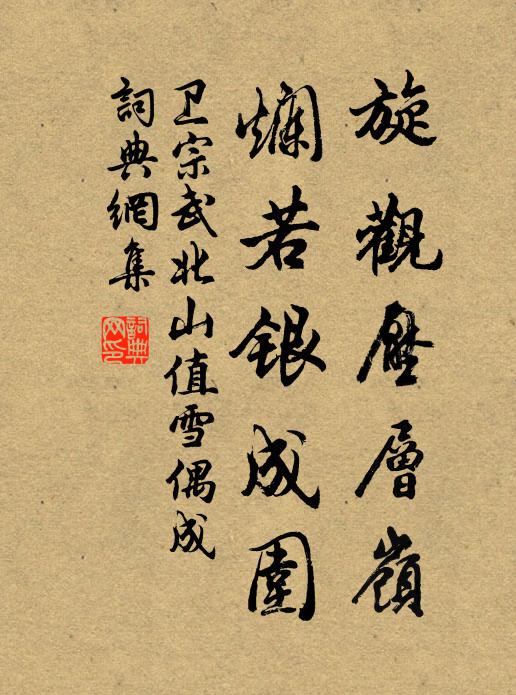 旋觀壓層嶺
爛若銀成圍
卫宗武北山值雪偶成
詞典網集
詞典网印